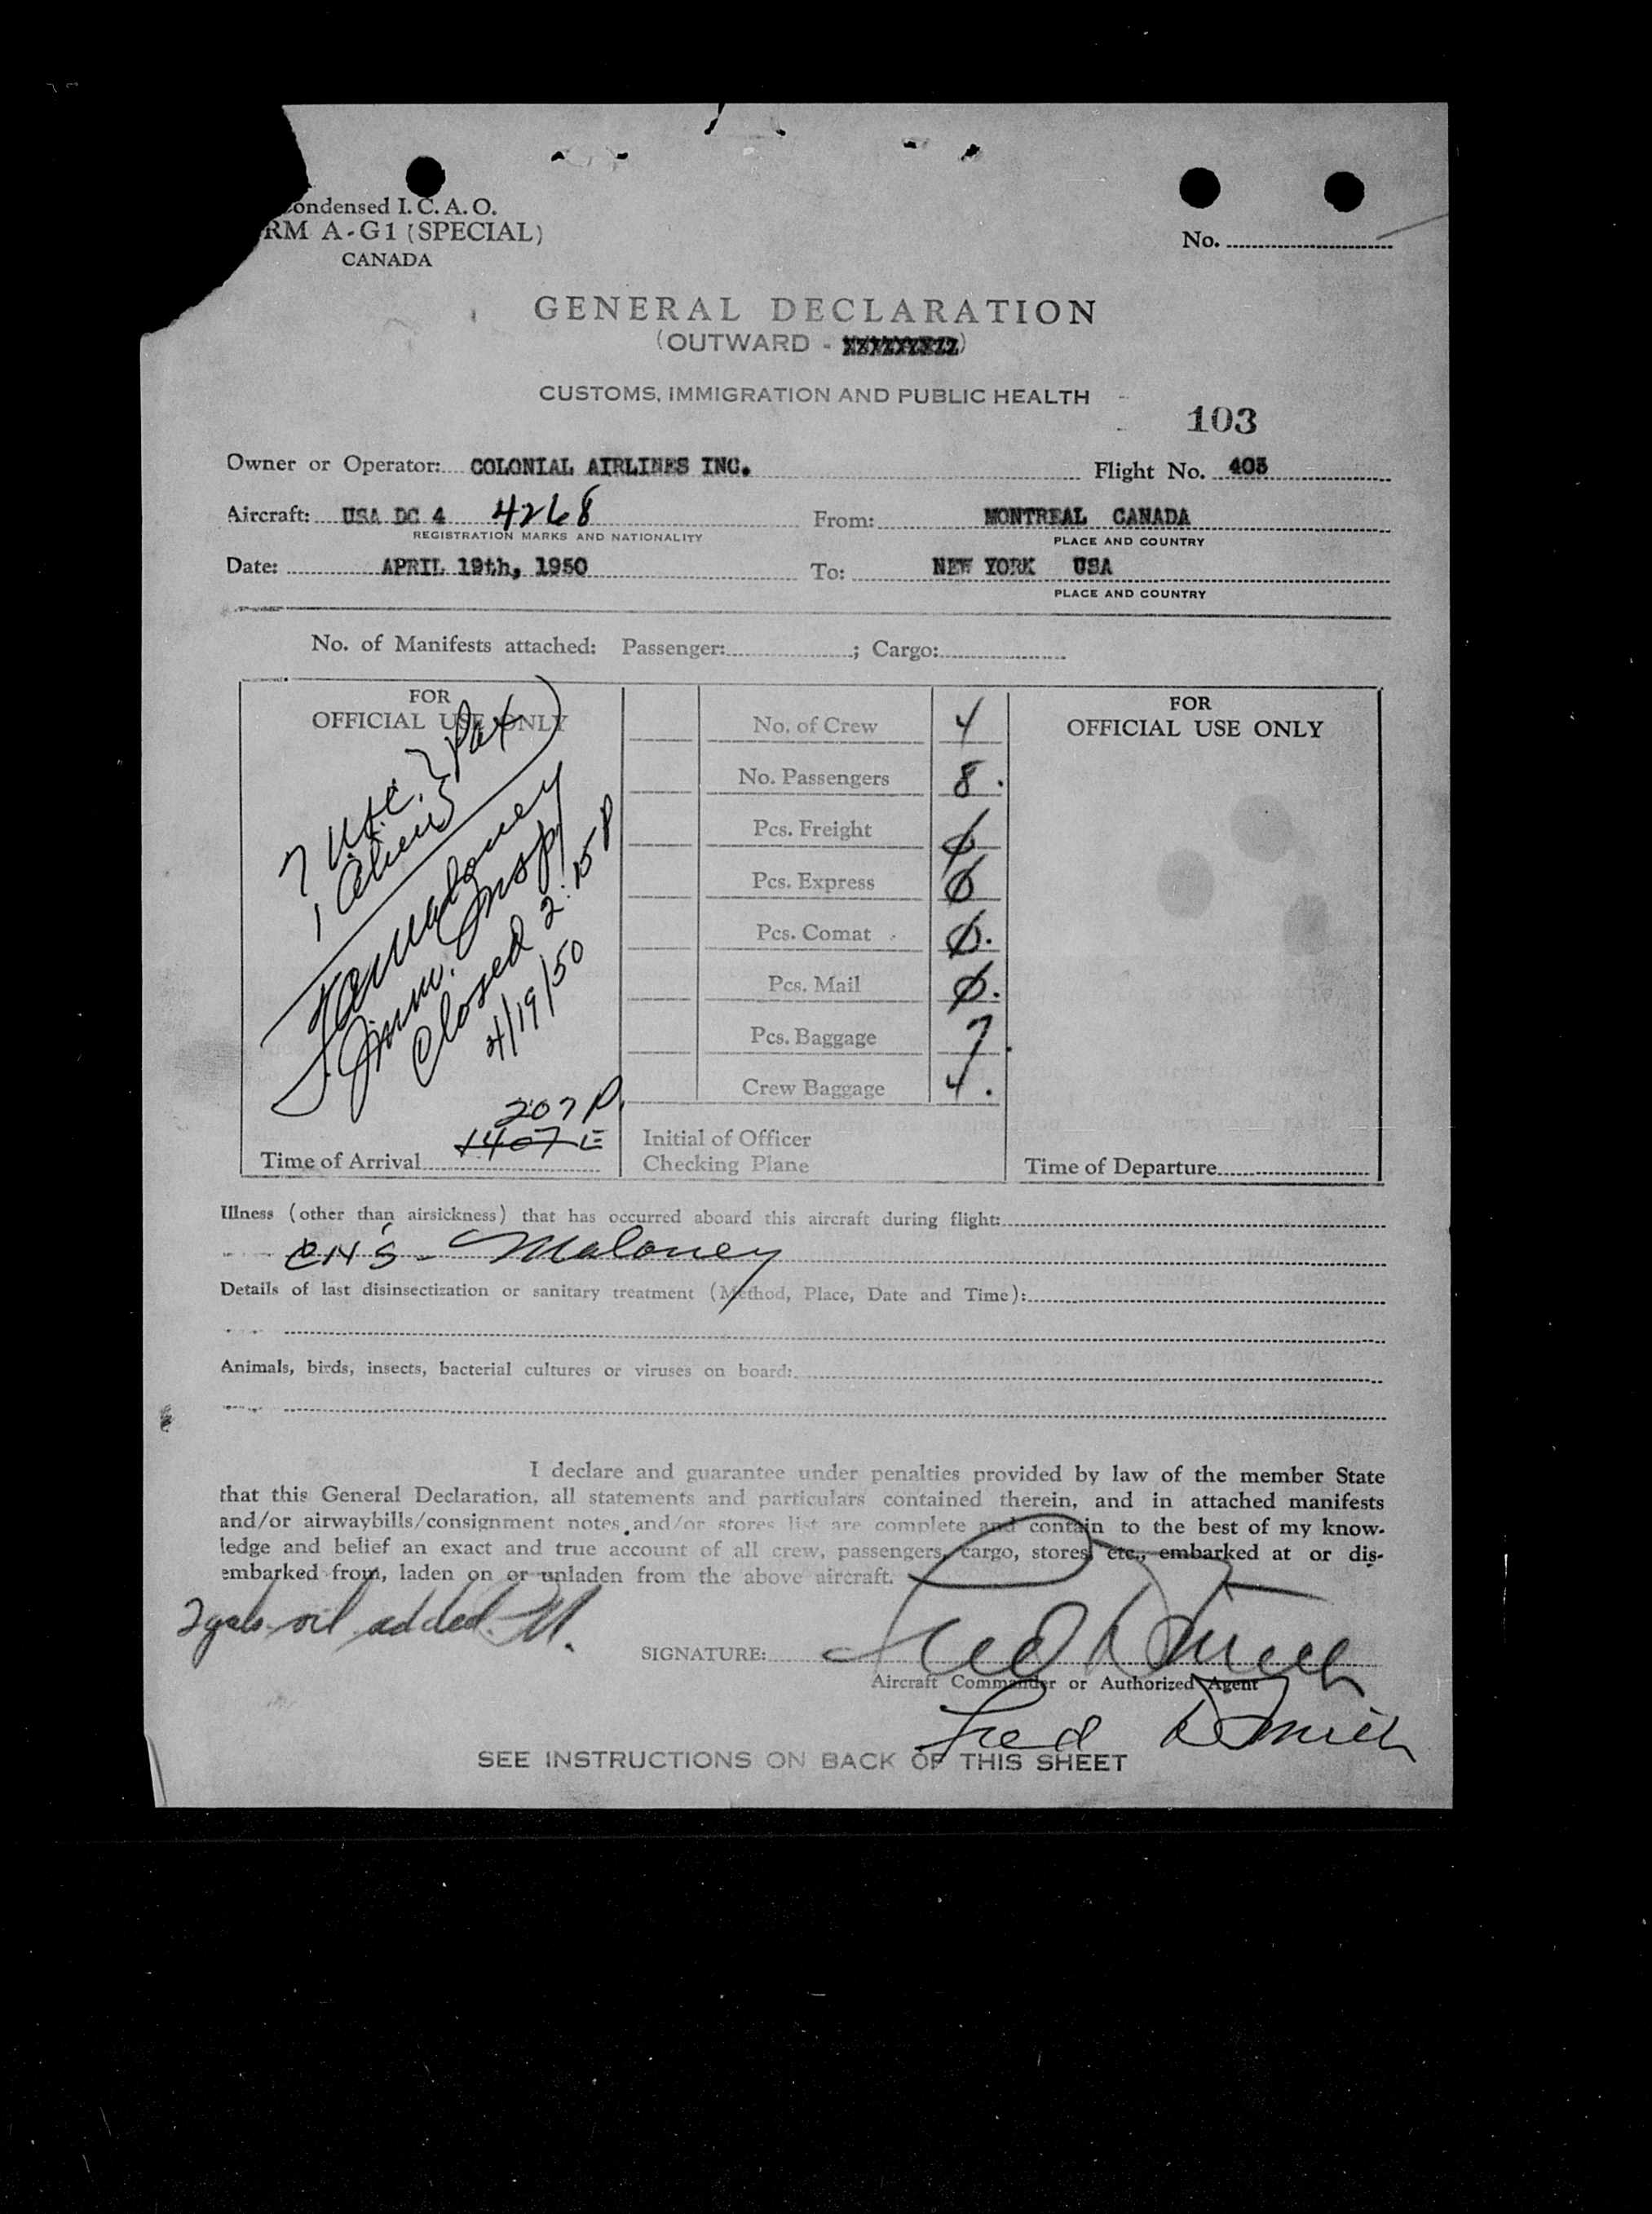 ondensed I. C. A. O.
RM A-G1 (SPECIAL)
CANADA
No.
GENERAL DECLARATION
(OUTWARD - XXXXXXXXX)
CUSTOMS, IMMIGRATION AND PUBLIC HEALTH
103
Owner or Operator: COLONIAL AIRLINES INC. Flight No. 403
Aircraft: USA DC 4 4268 From: MONTREAL CANADA
REGISTRATION MARKS AND NATIONALITY PLACE AND COUNTRY
Date: APRIL 19th, 1950 To: NEW YORK USA
PLACE AND COUNTRY
No. of Manifests attached: Passenger: ; Cargo:
FOR
OFFICIAL USE ONLY
7 U.S.C. } Pax
1 Alien
Maloney
Imm. Insp.
Closed 2:15 P
4/19/50
207 P.
1407 E
Time of Arrival
No. of Crew 4
No. Passengers 8.
Pcs. Freight 0
Pcs. Express 0
Pcs. Comat 0.
Pcs. Mail 0.
Pcs. Baggage 7.
Crew Baggage 4.
Initial of Officer
Checking Plane
FOR
OFFICIAL USE ONLY
Time of Departure
Illness (other than airsickness) that has occurred aboard this aircraft during flight:
Maloney
Details of last disinsectization or sanitary treatment (Method, Place, Date and Time):
Animals, birds, insects, bacterial cultures or viruses on board:
I declare and guarantee under penalties provided by law of the member State
that this General Declaration, all statements and particulars contained therein, and in attached manifests
and/or airwaybills/consignment notes and/or stores list are complete and contain to the best of my know-
ledge and belief an exact and true account of all crew, passengers, cargo, stores, etc., embarked at or dis-
embarked from, laden on or unladen from the above aircraft.
2 gals. oil added.
SIGNATURE: Fred D Smith
Aircraft Commander or Authorized Agent
Fred D Smith
SEE INSTRUCTIONS ON BACK OF THIS SHEET